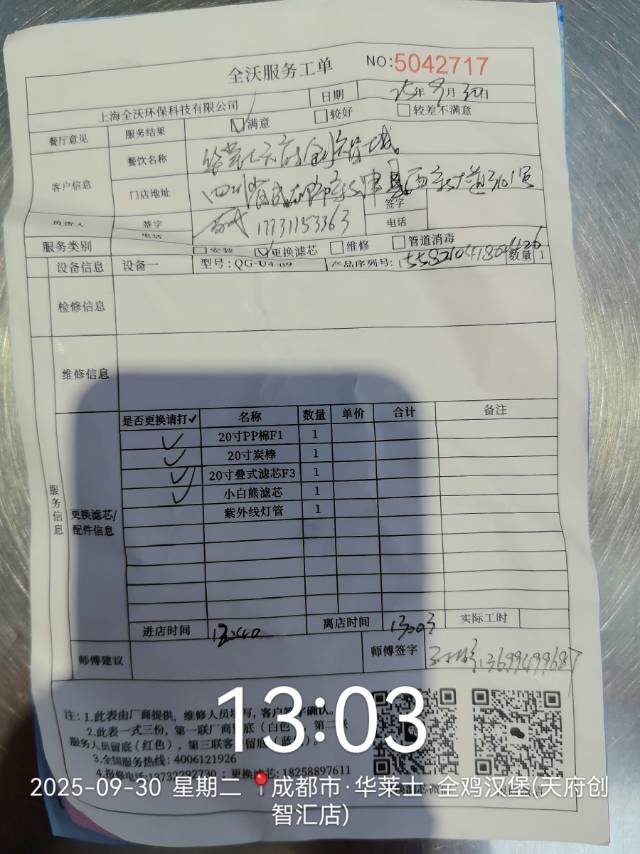 全沃服务工单 NO:5042717
上海全沃环保科技有限公司 日期 25年9月30日
餐厅意见 服务结果 ☑满意 □较好 □较差不满意
客户信息 餐饮名称 华莱士天府创智汇城
门店地址 四川省成都市新津县
负责人 签字 电话 17731153363 签字 电话
服务类别 □安装 ☑更换滤芯 □维修 □管道消毒
设备信息 设备一 型号: 产品序列号: 数量 1
检修信息
维修信息
服务信息 更换滤芯/配件信息
是否更换请打✓ 名称 数量 单价 合计 备注
✓ 20寸PP棉F1 1
✓ 20寸炭棒 1
✓ 20寸叠式滤芯F3 1
✓ 小白熊滤芯 1
紫外线灯管 1
进店时间 离店时间 13:03 实际工时
师傅建议 师傅签字 13699499687
注: 1.此表由厂商提供，维修人员填写，客户签字确认。
2.此表一式三份，第一联厂商留底(白色)，第二联
服务人员留底(红色)，第三联客户留底(蓝
3.全国服务热线: 4006121926
4.报修电话: 更换滤芯: 18258897611
13:03
2025-09-30 星期二 📍成都市·华莱士·全鸡汉堡(天府创
智汇店)